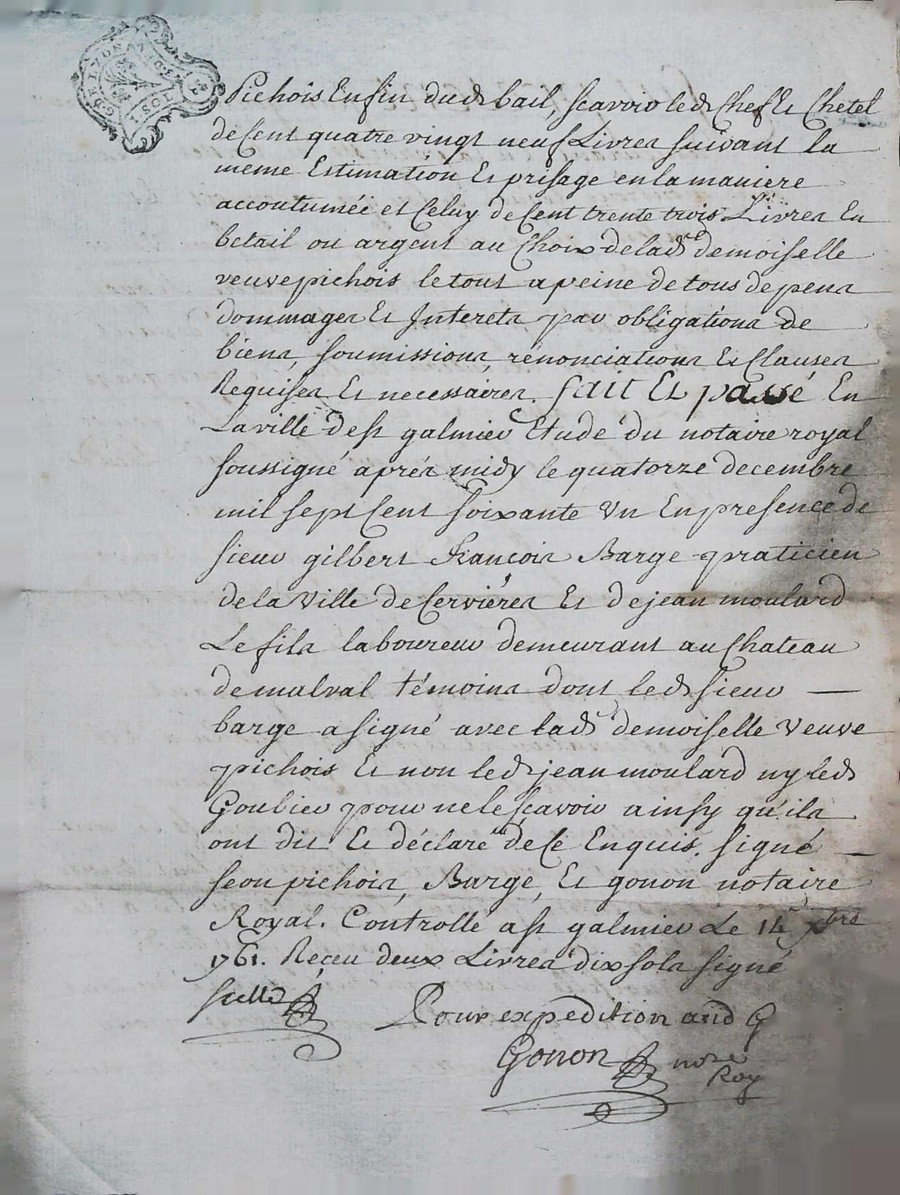 Pichois Enfin dud bail, scavoir led Chef Et Chetel
de Cent quatre vingt neuf Livres suivant la
meme Estimation Et prisage en la maniere
accoutumée et Celuy de Cent trente trois Livres En
betail ou argent au Choix de lad demoiselle
veuve pichois le tout a peine de tous depens
dommages Et Interets par obligations de
biens, soumissions, rénonciations Et Clauses
Requises Et necessaires. fait Et passé En
La ville de st galmier Etude du notaire royal
soussigné aprés midy le quatorze decembre
mil sept Cent soixante Un En presence de
sieur gilbert françois Barge praticien
de la Ville de Cerviéres Et de jean moulard
Le fils laboureur demeurant au Chateau
de malval témoins dont led sieur
barge a signé avec lad demoiselle Veuve
pichois Et non led jean moulard ny led
Goubier pour ne le scavoir ainsy qu'ils
ont dit Et déclaré de Ce Enquis. signé
seon pichois, Barge, Et gonon notaire
Royal. Controllé a st galmier Le 14 xbre
1761. Receu deux Livres dix sols signé
Pour expedition aud
Gonon nore
Roy